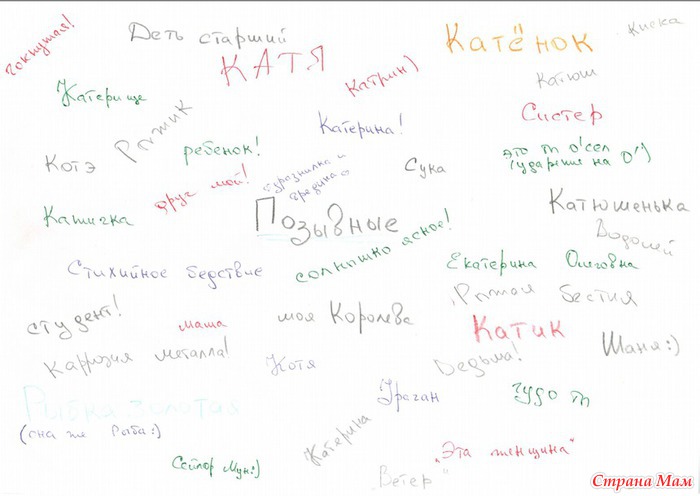 чокнутая!
Деть старший
КАТЯ
Катёнок
Киска
Катерище
Рыжик
Катрин)
Катюш
Систер
Катерина!
ребенок!
Котэ
друг мой!
Сука
это т О'сел
(ударение на О')
Катичка
Позывные
Катюшенька
Водолей
Стихийное бедствие
солнышко ясное!
Екатерина Олеговна
Рыжая бестия
студент!
маша
моя Королева
Катик
Шаня:)
Коррозия металла!
Котя
Ведьма!
Рыбка золотая
(она же Рыба:)
Ураган
чудо т
Катерина
Сейлор Мун:)
"Эта женщина"
Ветер
Страна Мам